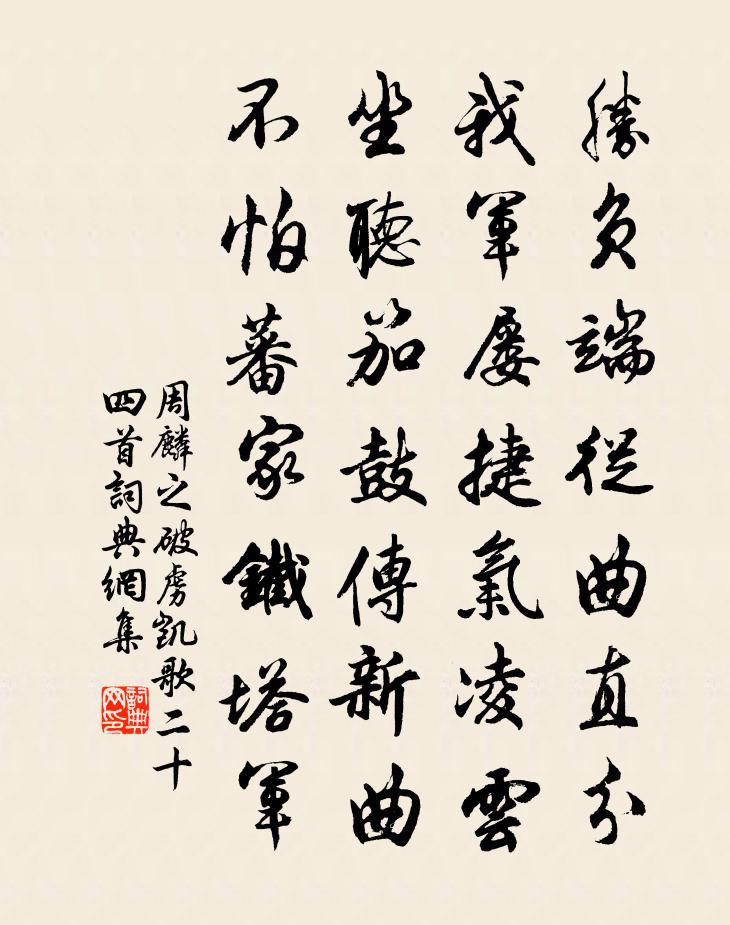 勝負端從曲直分
我軍屡捷氣凌雲
坐聽笳鼓傳新曲
不怕蕃家鐵塔軍
周麟之破虜凱歌二十
四首詞典網集
詞典
网印